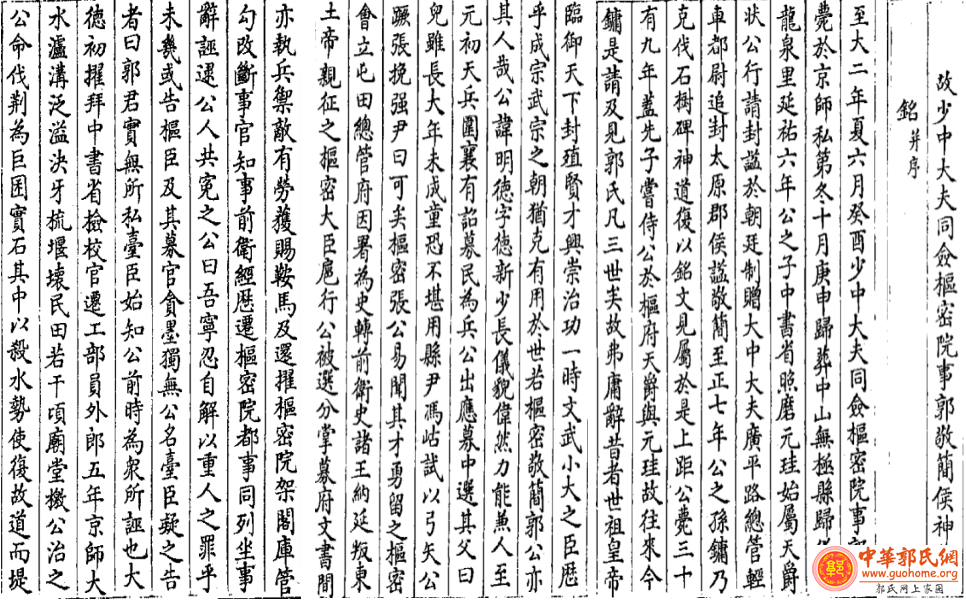 故少中大夫同僉樞密院事郭敬簡侯神
銘并序
至大二年夏六月癸酉少中大夫同僉樞密院事
薨於京師私第冬十月庚申歸葬中山無極縣歸
龍泉里延祐六年公之子中書省照磨元珪始屬天爵
状公行請封諡於朝廷制贈大中大夫廣平路總管輕
車都尉追封太原郡侯諡敬簡至正七年公之孫鏞乃
克伐石樹碑神道復以銘文見屬於是上距公薨三十
有九年蓋先子嘗侍公於樞府天爵與元珪故往來今
鏞是請及見郭氏凡三世矣故弗庸辭昔者世祖皇帝
臨御天下封殖賢才興崇治功一時文武小大之臣歷
乎成宗武宗之朝猶克有用於世若樞密敬簡郭公亦
其人哉公諱明德字德新少長儀貌偉然力能兼人至
元初天兵圍襄有詔募民為兵公出應募中選其父曰
兒雖長大年未成童恐不堪用縣尹馮岵試以弓矢公
蹶張挽强尹曰可矣樞密張公易聞其才勇留之樞密
會立屯田總管府因署為史轉前衛史諸王納延叛東
土帝親征之樞密大臣扈行公被選分掌募府文書間
亦執兵禦敵有勞獲賜鞍馬及還擢樞密院架閣庫管
勾改斷事官知事前衛經歷遷樞密院都事同列坐事
辭誣逮公人共寃之公曰吾寧忍自解以重人之罪乎
未幾或告樞臣及其募官貪墨獨無公名臺臣疑之告
者曰郭君實無所私臺臣始知公前時為衆所誣也大
德初擢拜中書省檢校官遷工部員外郎五年京師大
水瀘溝泛溢決牙梳堰壊民田若干頃廟堂檄公治之
公命伐荆為巨囷實石其中以殺水勢使復故道而堤
中華郭氏網
www.guohome.org
郭氏网上家園